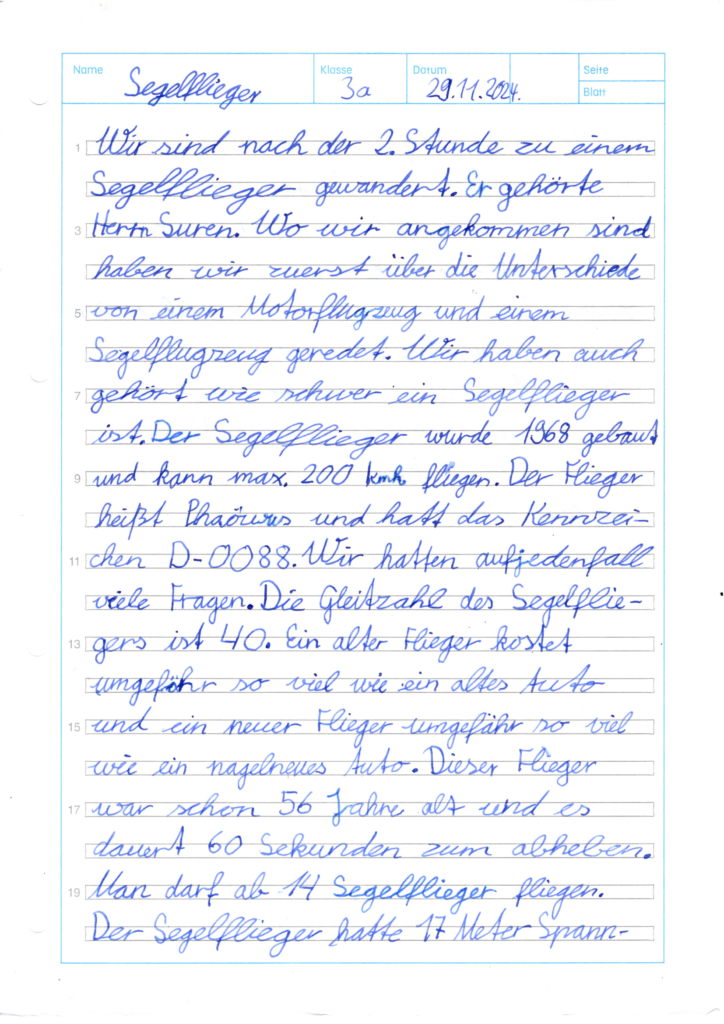 Name Segelflieger Klasse 3a Datum 29.11.2024. Seite
Blatt
1 Wir sind nach der 2. Stunde zu einem
Segelflieger gewandert. Er gehörte
3 Herrn Suren. Wo wir angekommen sind
haben wir zuerst über die Unterschiede
5 von einem Motorflugzeug und einem
Segelflugzeug geredet. Wir haben auch
7 gehört wie schwer ein Segelflieger
ist. Der Segelflieger wurde 1968 gebaut
9 und kann max. 200 kmh fliegen. Der Flieger
heißt und hatt das Kennzei-
11 chen D-0088. Wir hatten aufjedenfall
viele Fragen. Die Gleitzahl des Segelflie-
13 gers ist 40. Ein alter Flieger kostet
umgefähr so viel wie ein altes Auto
15 und ein neuer Flieger umgefähr so viel
wie ein nagelneues Auto. Dieser Flieger
17 war schon 56 Jahre alt und es
dauert 60 Sekunden zum abheben.
19 Man darf ab 14 Segelflieger fliegen.
Der Segelflieger hatte 17 Meter Spann-